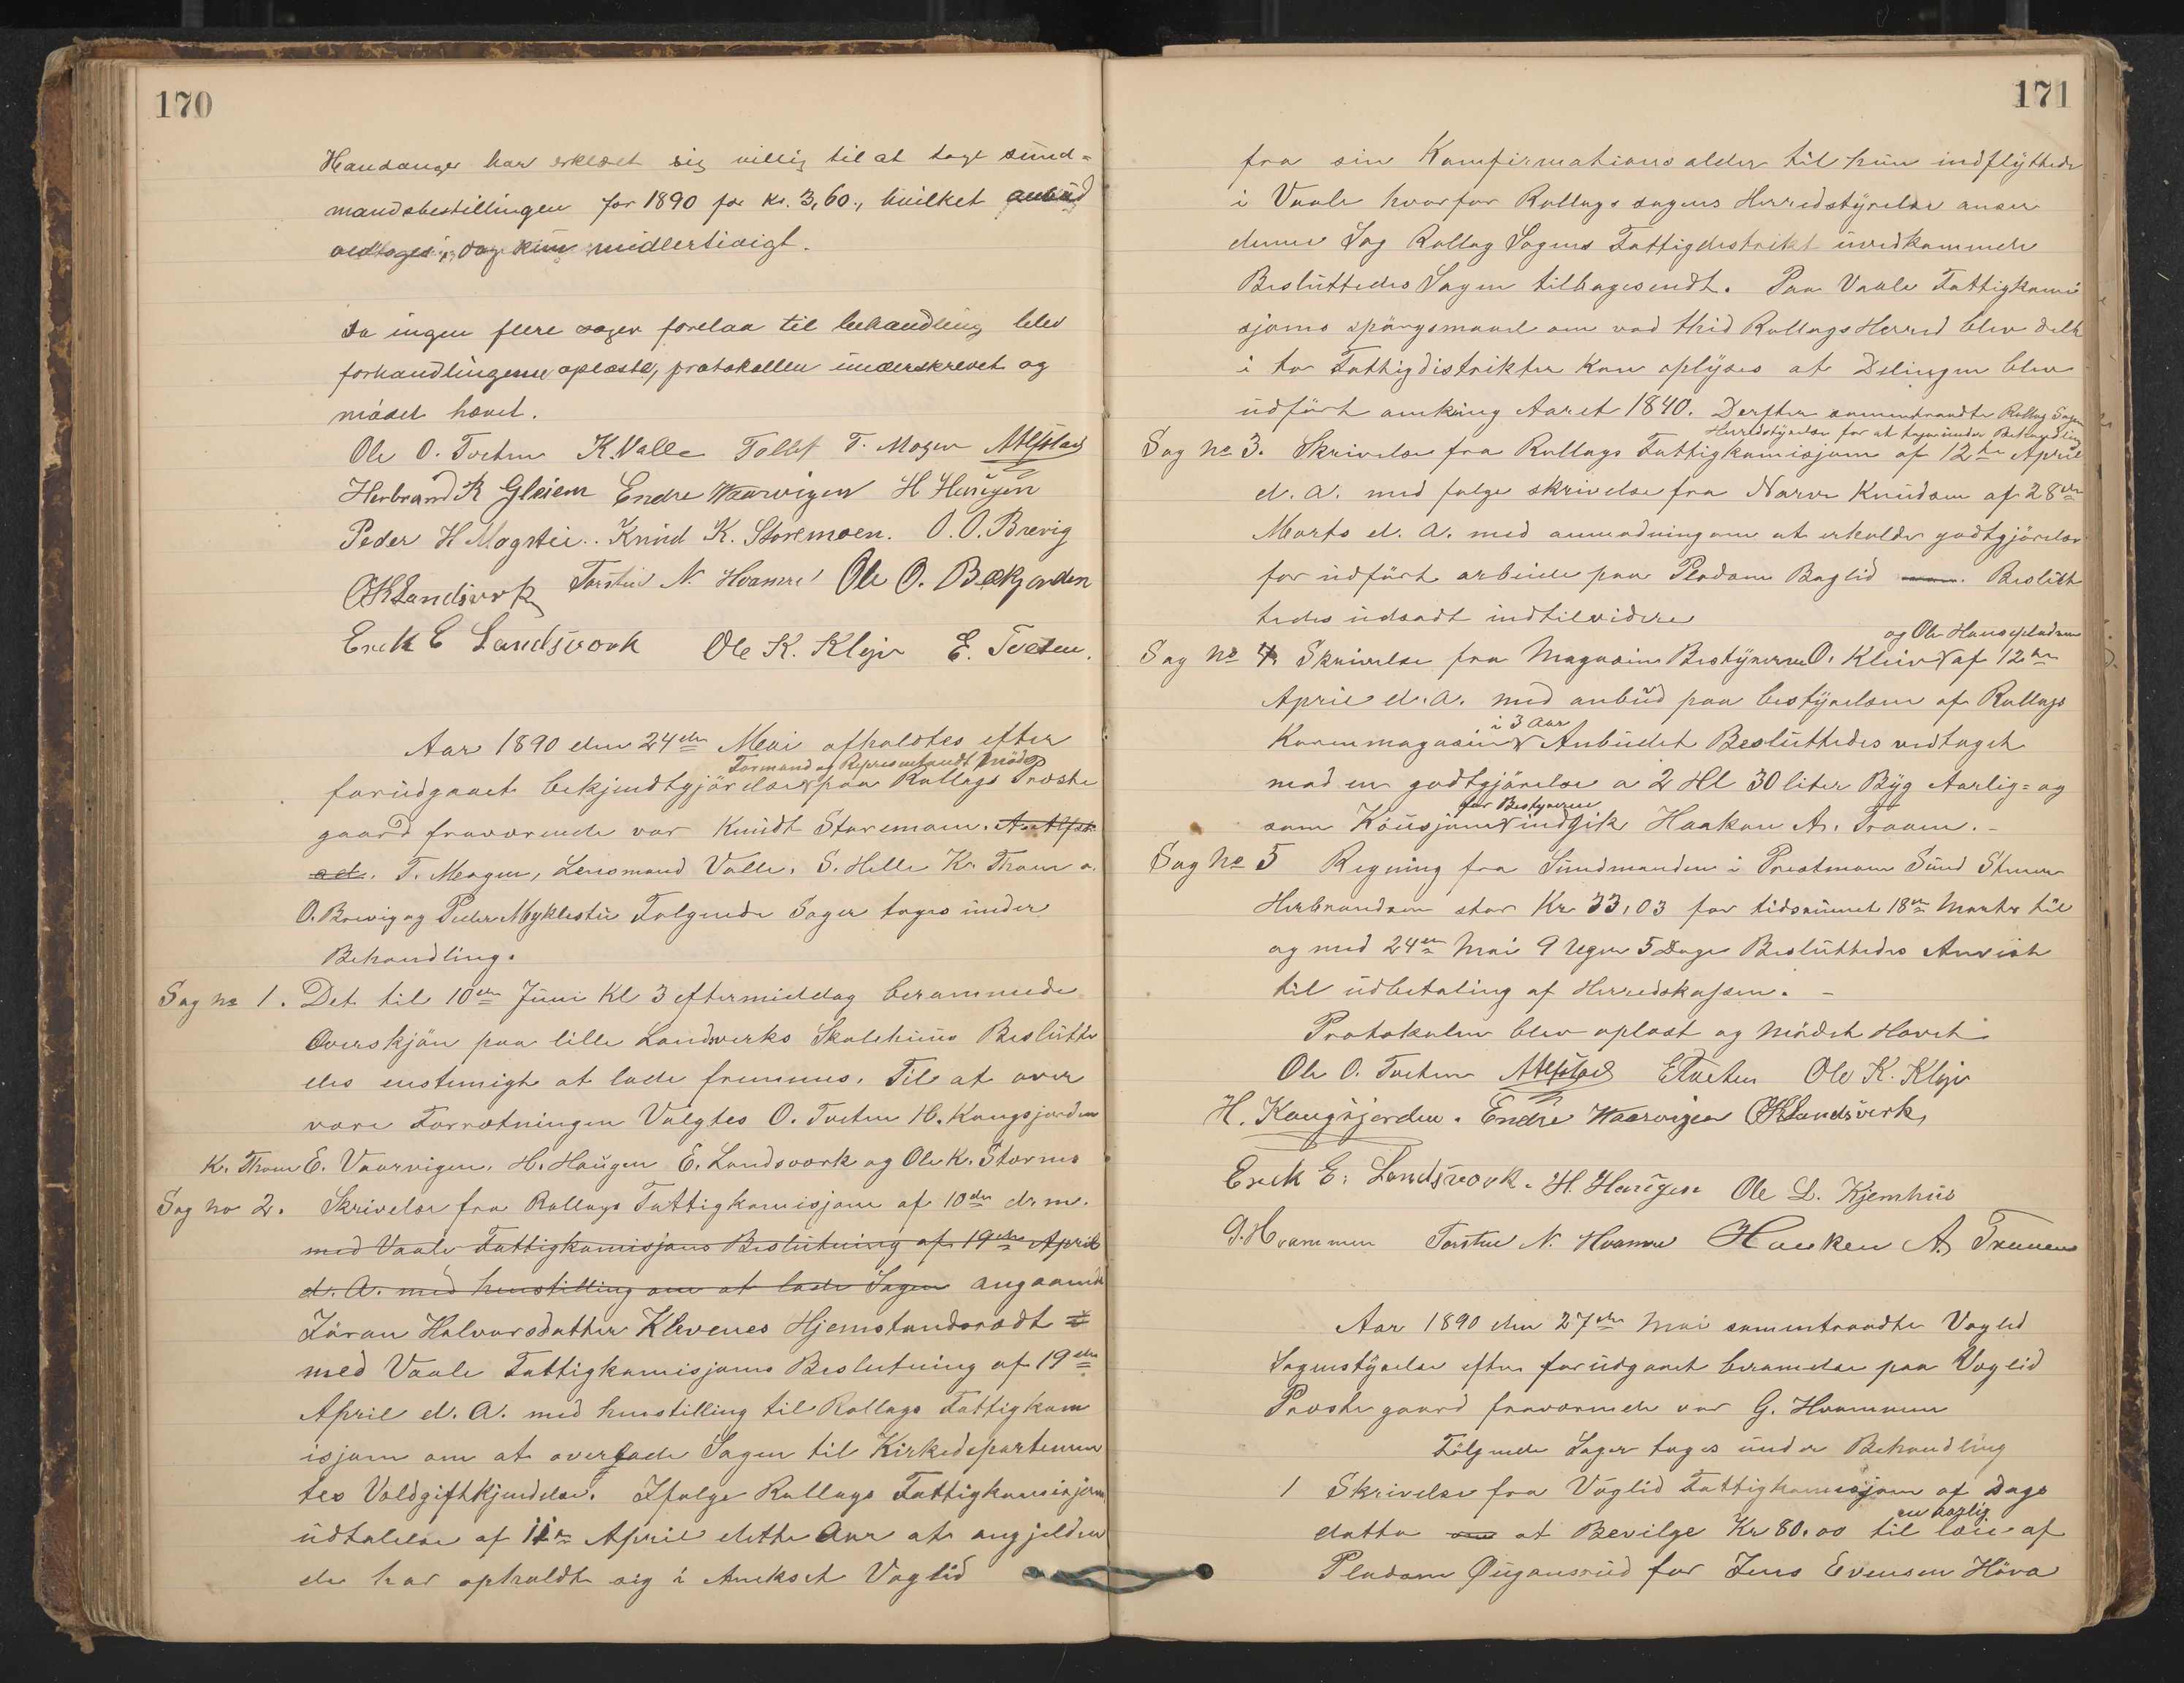 170
Haudanger har erklæret sig villig til at tage sund-
mandsbestillingen for 1890 for kr. 3,60., hvilket anbud
vedtoges i dag kun midlertidigt.
Da ingen flere sager forelaa til behandling blev
forhandlingerne oplæste, protokollen underskrevet og
mödet hævet.
Ole O. Tveten K. Valle Tollef T. Mogen A Alfstad
Herbrand K Gleiem Endre Waarvigen H Haugen
Peder H Mogstei.. Knud K. Storemoen. O. O. Brevig
OKLandsverk Torstein N. Hvamre Ole O. Bækjorden
Erick E Landsvork Ole K. Klejv E. Tveten.
Aar 1890 den 24de Mai afholdtes efter
Formand og Repræsentandt Möde
forudgaaet bekjendtgjörelse paa Rollags Præste
gaard fraværende var Knudt Storemoen. A. Alfst
ad. T. Mogen, Lensmand Valle, S. Helle K. Traaen a.
O. Brevig og Peder Myklestu Følgende Sager toges under
Behandling.
Sag no 1. Det til 10de Juni Kl 3 eftermiddag berammede
Overskjön paa lille Landsverks Skolehuus Beslutte
des enstemigt at lade fremmes. Til at over
være Forrætningen Valgtes O. Tveten H. Kongsjorden
K. Traaen E. Vaarvigen, H. Haugen E. Landsvork og Ole K. Stormo
Sag no 2. Skrivelse fra Rollags Fattigkomisjom af 10de d. m.
med Vaale Fattigkomisjons Beslutning af 19de April
d. A. med henstilling om at lade Sagen angaaende
Jöran Halvorsdatter Klevenes Hjemstandsrædt
med Vaale Fattigkomisjoms Beslutning af 19de
April d. A. med henstilling til Rollags Fattigkom
isjom om at overlade Sagen til Kirkedepartemen
tes Voldgiftkjendelse. Ifølge Rollags Fattigkomisjom
udtalelse af 11te April dette Aar at angjelden
de har opholdt sig i Anekset Væglid
171
fra sin Komfirmationsalder til hun indflyttede
i Vaale hvorfor Rollags sogns Herredstyrelse anser
denne Sag Rollag Sogns Fattigdestrikt uvedkommende
Besluttedes Sagen tilbagesendt. Paa Vaale Fattigkomi
sjoms spörgsmaal om vad thid Rollags Herred blev delt
i to Fattigdistrikter kan oplyses at Delingen blev
udfört omkring Aaret 1840. Derefter sammentraadte Rollag Sogns
Herredstyrelse for at tage under Behandling
Sag no 3. Skrivelse fra Rollags Fattigkomisjom af 12te April
d. A. med følge skrivelse fra Narve Knudsen af 28de
Marts d. A. med anmodning om at erholde godtgjörelse
for udfört arbeide paa Pladsen Baglid Beslut
tedes udsadt indtilvidere
og Ole Hansepladsen
Sag no 4. Skrivelse fra Magasin Bestyrerne O. Kleiv af 12te
April d. A. med anbud paa bestyrelsen af Rollags
i 3 Aar
Kornmagasin Anbudet Besluttedes vedtaget
mod en godtgjörelse a 2 Hl 30 liter Byg Aarlig- og
for Bestyrerne
som Kausjonist indgik Haakon A. Traaen. -
Sag no 5 Regning fra Sundmanden i Prestmoen Sund Stener
Herbrandsen stor Kr 33,03 for tidsrummet 18de Marts til
og med 24de Mai 9 Uger 5 Dage Besluttedes Anvist
til udbetaling af Herredskassen. -
Protokolen blev oplæst og Mödet Hævet
Ole O. Tveten A Alfstad ETveten Ole K. Klejv
H. Kongsjorden. Endre Waarvigen OKLandsverk,
Erick E. Landsvork. H. Haugen Ole L. Kjemhus
G. Hvammen Torsten N. Hvamre Haaken A. Traaen
Aar 1890 den 27de Mai sammentraadte Væglid
Sognestyrelse efter forudgaaet beramelse paa Væglid
Præstegaard fraværende var G. Hvammen
Fölgende Sager toges under Behandling
1 Skrivelse fra Væglid Fattigkomisjom af Dags
en aarlig
datto om at Bevilge Kr 80.00 til leie af
Pladsen Øygansrud for Jens Evensen Höva